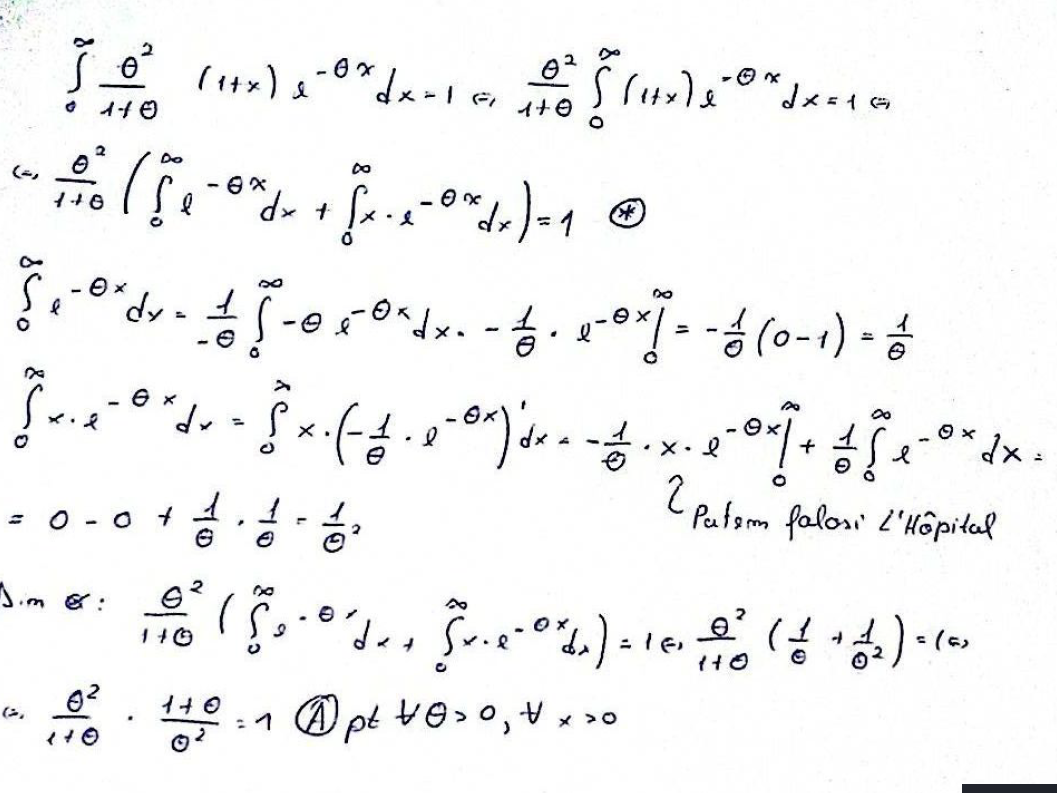 ∫₀^∞ θ²/(1+θ) (1+x) e^(-θx) dx = 1 ⇔ θ²/(1+θ) ∫₀^∞ (1+x) e^(-θx) dx = 1 ⇔
⇔ θ²/(1+θ) (∫₀^∞ e^(-θx) dx + ∫₀^∞ x·e^(-θx) dx) = 1 (*)
∫₀^∞ e^(-θx) dx = 1/(-θ) ∫₀^∞ -θ e^(-θx) dx = -1/θ · e^(-θx) |₀^∞ = -1/θ (0-1) = 1/θ
∫₀^∞ x·e^(-θx) dx = ∫₀^∞ x·(-1/θ · e^(-θx))' dx = -1/θ · x · e^(-θx) |₀^∞ + 1/θ ∫₀^∞ e^(-θx) dx =
= 0 - 0 + 1/θ · 1/θ = 1/θ²
Putem folosi L'Hôpital
Din (*): θ²/(1+θ) (∫₀^∞ e^(-θx) dx + ∫₀^∞ x·e^(-θx) dx) = 1 ⇔ θ²/(1+θ) (1/θ + 1/θ²) = 1 ⇔
⇔ θ²/(1+θ) · (1+θ)/θ² = 1 (A) pt ∀ θ > 0, ∀ x > 0